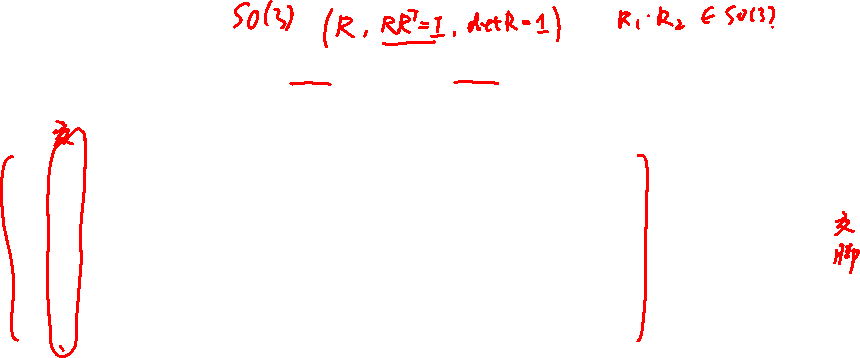 SO(3) (R, RRᵀ=I, det R=1) R₁·R₂ ∈ SO(3)?